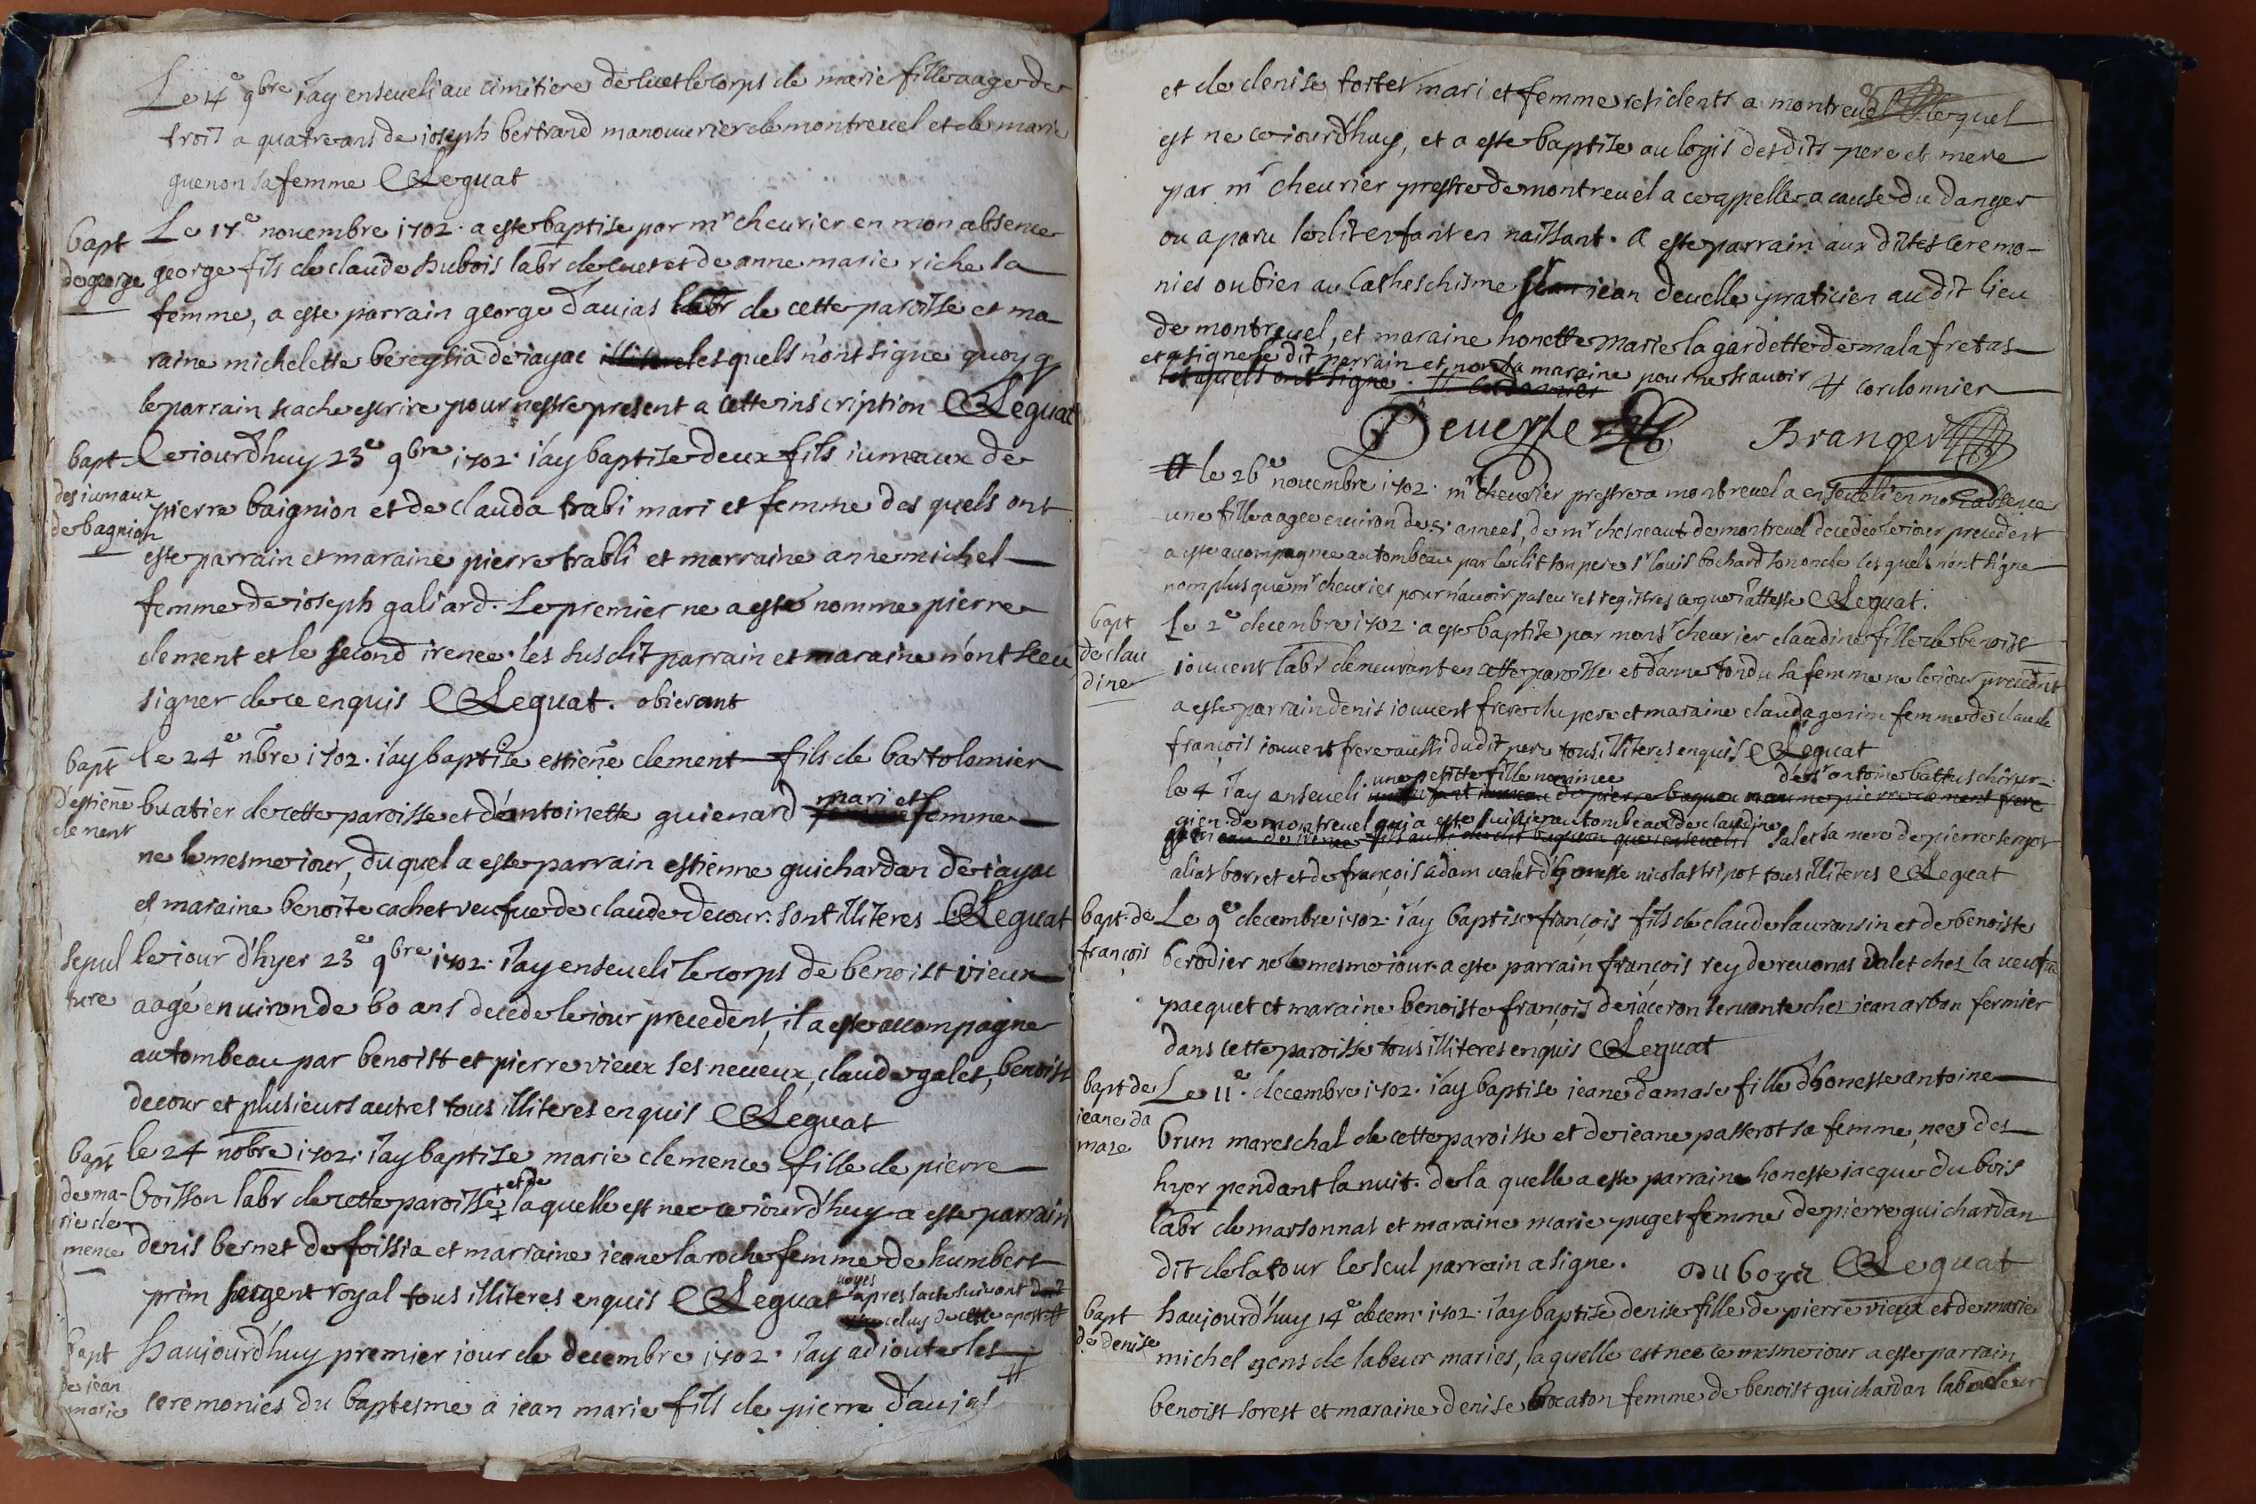 Le 4e 9bre iay enseveli au cimitiere de cuet le corps de marie fille aagee de
trois a quatre ans de ioseph bertrand manouvrier de montrevel et de marie
guenon sa femme Leguat
bapt
de george
Le 17e novembre 1702. a este baptise par mr chevrier en mon absence
george fils de claude dubois labr de cuet et de anne marie riche sa
femme, a este parrain george daujas labr de cette paroisse et ma
raine michelette bereyzia de iayac lesquels n'ont signe quoy q
le parrain scache escrire pour n'estre present a cette inscription Leguat
bapt
des iumaux
de bagnion
Ceiourd'huy 23e 9bre 1702. i'ay baptise deux fils iumeaux de
pierre baignion et de clauda trabi mari et femme des quels ont
este parrain et maraine pierre trabli et marraine anne michel
femme de ioseph galiard. Le premier ne a este nomme pierre
clement et le second irenee. les susdit parrain et maraine n'ont sceu
signer de ce enquis Leguat. obierunt
bapt
d'estiene
clement
le 24e nbre 1702. i'ay baptise estiene clement fils de bartolomier
buatier de cette paroisse et d'antoinette guienard mari et femme
ne le mesme iour, du quel a este parrain estienne guichardan de iayac
et maraine benoite cachet veufve de claude decour. sont illiteres Leguat
sepul
ture
le iour d'hyer 23e 9bre 1702. i'ay enseveli le corps de benoist vieux
aagé environ de 60 ans decede le iour precedent, il a este accompagne
au tombeau par benoist et pierre vieux ses neveux, claude galet, benoist
decour et plusieurs autres tous illiteres enquis Leguat
bapt
de ma-
rie cle
mence
le 24 nobre 1702. i'ay baptise marie clemence fille de pierre
boisson labr de cette paroisse + et de + laquelle est nee ceiourd'huy a este parrain
denis bernet de foissia et marraine ieane laroche femme de humbert
prim sergent royal tous illiteres enquis Leguat voyes apres l'acte suivant
celuy de cette apost #
bapt
de jean
marie
haujourd'huy premier iour de decembre 1702. i'ay adjouter les
ceremonies du baptesme a iean marie fils de pierre daujas #
et de denise fortet mari et femme residents a montrevel lequel
est ne ceiourd'huy, et a este baptise au logis desdits pere et mere
par mr chevrier prestre de montrevel a ce appelle a cause du danger
ou a paru ledit enfant en naissant. a este parrain aux dites ceremo-
nies oubien au Catheschisme iean develle praticien au dit lieu
de montrevel, et maraine honette marie la gardette de malafretas
et a signe le dit parrain et non la maraine pour ne scavoir # cordonnier
lesquels ont signe. # cordonnier
Develle Branger
# le 26e novembre 1702. mr chevrier prestre a montrevel a enseveli en mon absence
une fille aagee environ de 5 annees, de mr chesneaut de montrevel decedee le iour precedent
a este accompagnee au tombeau par ledit son pere sr louis bochard son oncle les quels n'ont signe
nom plus que mr chevrier pour n'avoir pas eu les registres ce que i'atteste Leguat.
bapt
de clau
dine
Le 2e decembre 1702. a este baptise par monsr chevrier claudine fille de benoist
iouvent labr demeurant en cette paroisse et d'anne tondu sa femme ne le iour precedent
a este parrain denis iouvent frere du pere et maraine clauda gonin femme de claude
françois iouvent frere aussi du dit pere tous illiteres enquis Leguat
le 4 i'ay enseveli une petite fille nommee de sr antoine battus chirur-
gien de montrevel qui a este suivie au tombeau de claudine
salet sa mere de pierre sergot
alias borret et de françois adam valet d'honeste nicolas tripot tous illiteres Leguat
bapt. de
françois
Le 9e decembre 1702. i'ay baptise françois fils de claude lauransin et de benoiste
berodier ne le mesme iour. a este parrain françois rey de revonas valet ches la veufve
pacquet et maraine benoiste françois de iaceron servante chez iean arban fermier
dans cette paroisse tous illiteres enquis Leguat
bapt de
ieane da
mase
Le 11e. decembre 1702. i'ay baptise ieane damase fille d'honeste antoine
brun mareschal de cette paroisse et de ieane passerot sa femme, nee des
hyer pendant la nuit. de la quelle a este parraine honeste iacque du bois
labr de marsonnas et maraine marie puget femme de pierre guichardan
dit delatour le seul parrain a signe. du boys Leguat
bapt
de denise
haujourd'huy 14e decem. 1702. i'ay baptise denise fille de pierre vieux et de marie
michel gens de labeur maries, laquelle est nee ce mesme iour a este parrain
benoist sorest et maraine denise bocaton femme de benoist guichardan laboureur